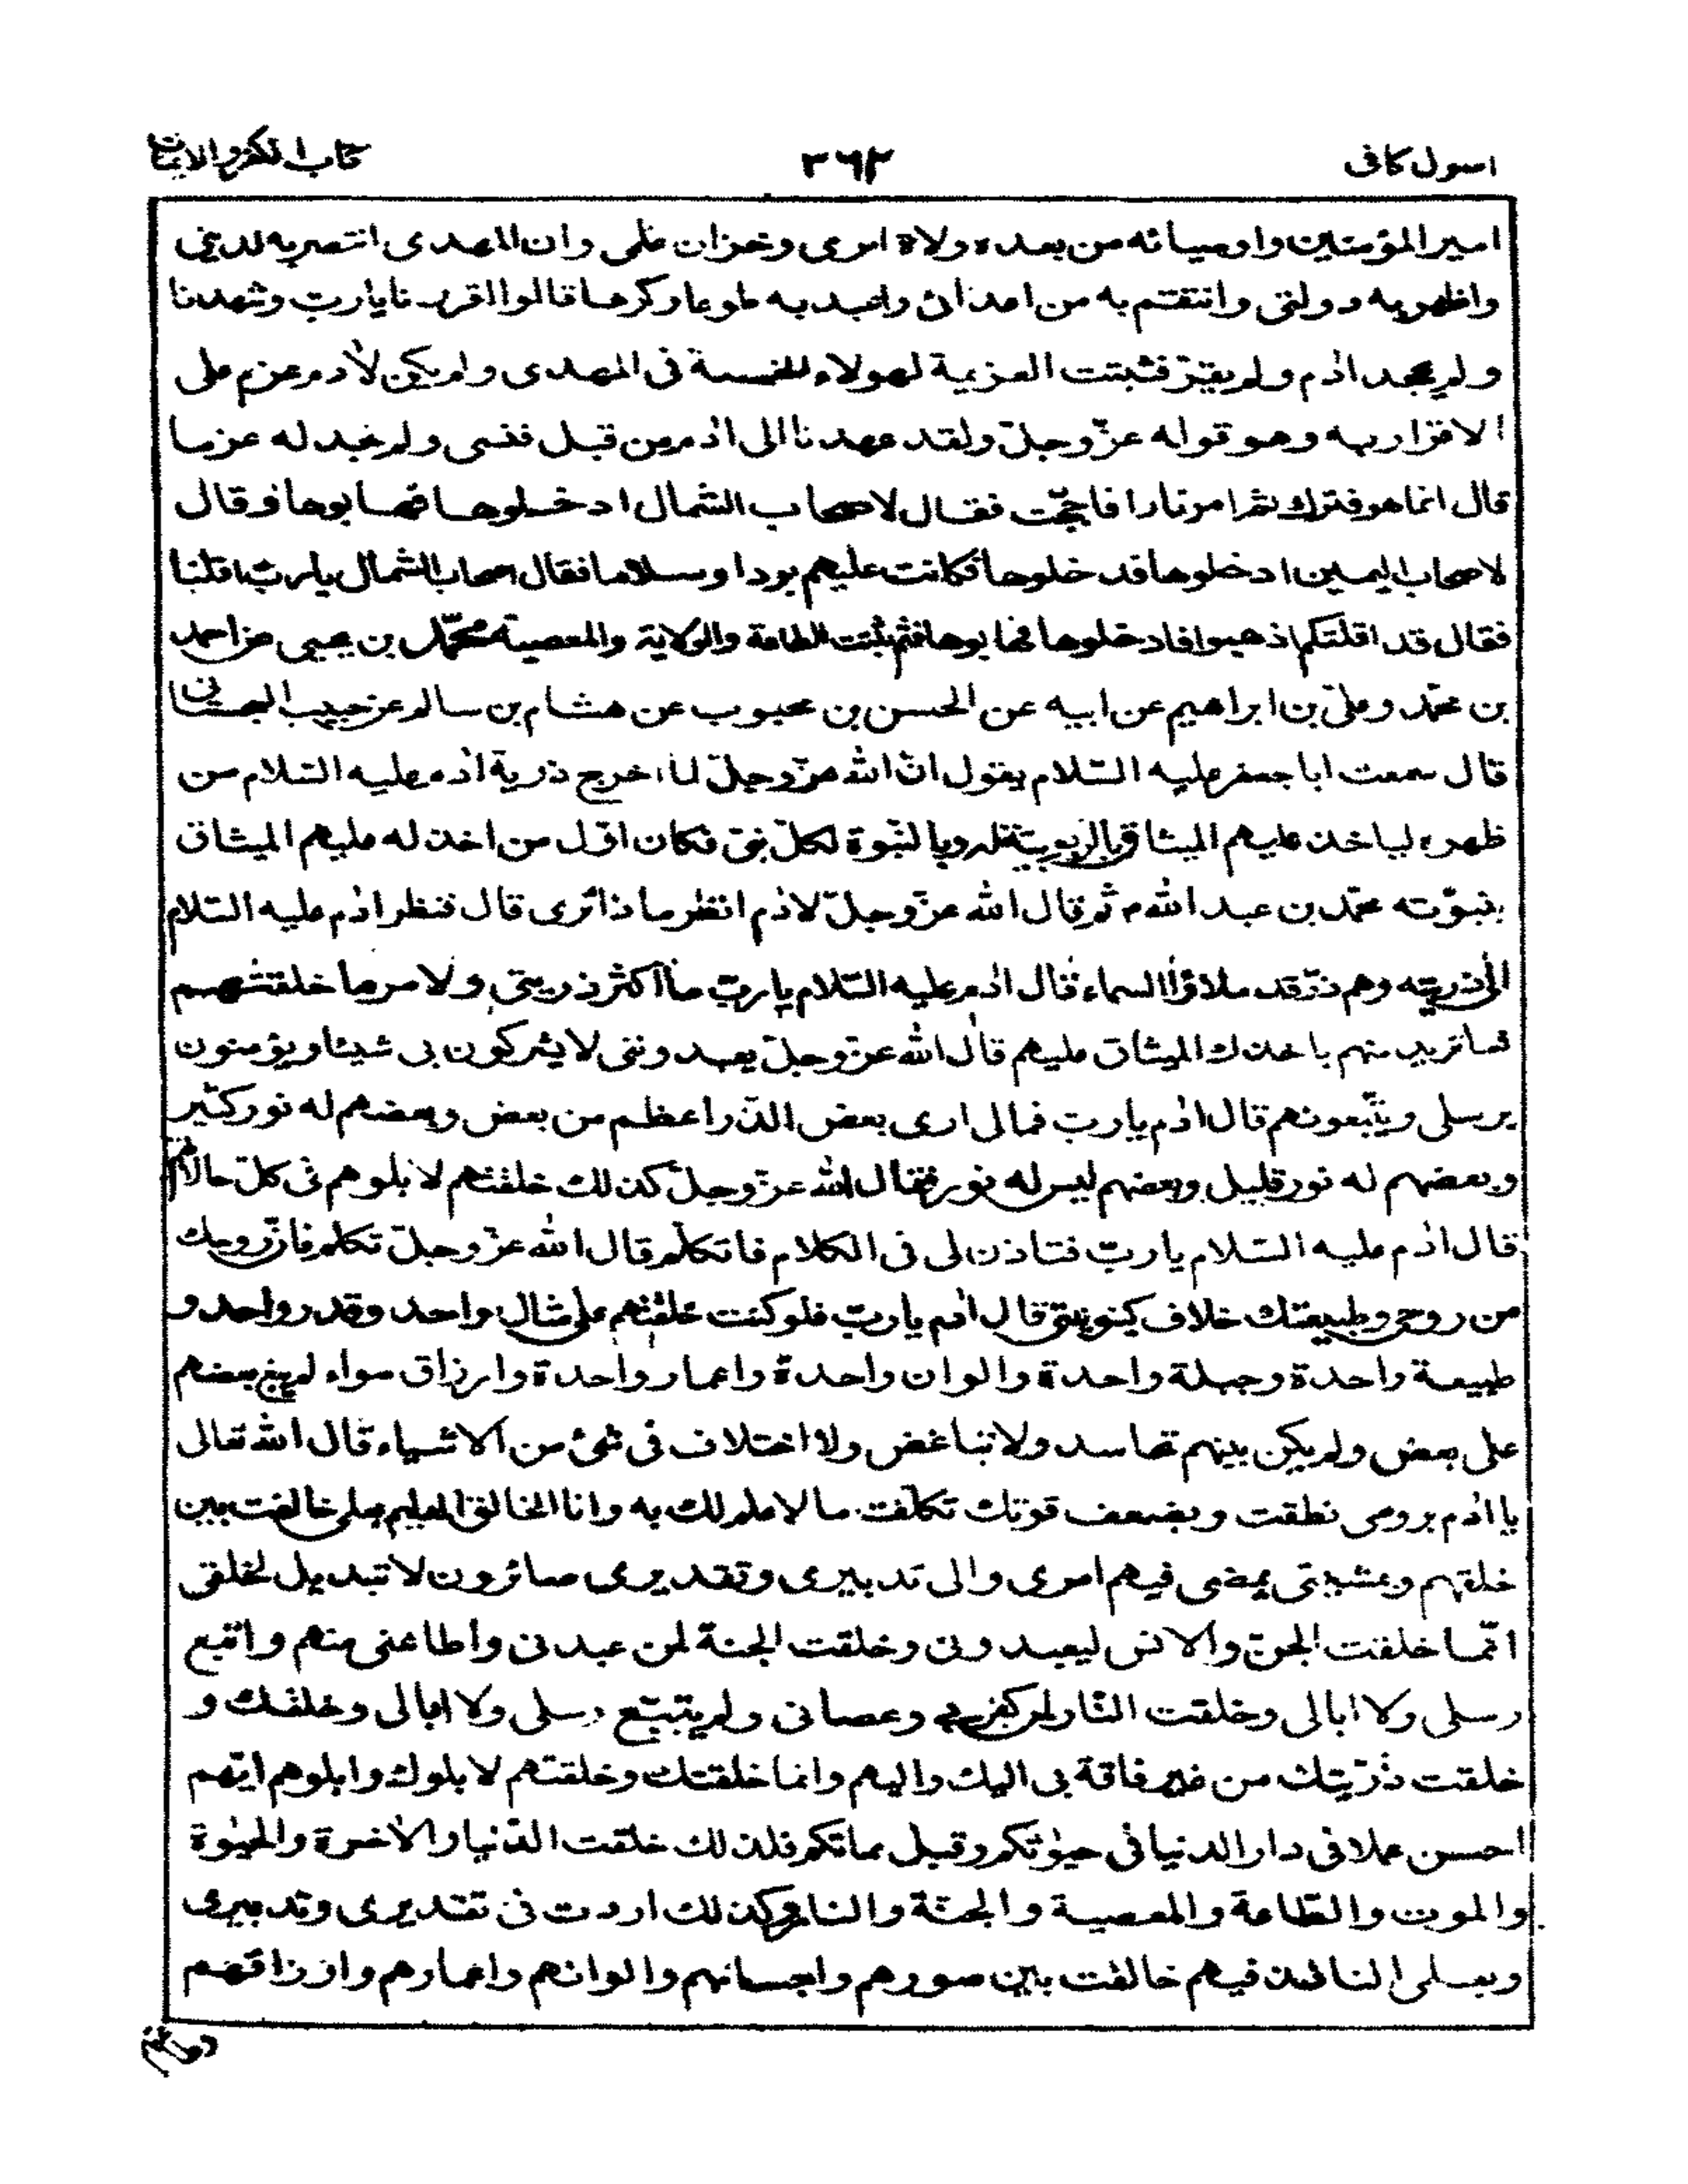 اصول كافى
٣٦٢
كتاب الكفر والايمان
امير المؤمنين واوصيائه من بعده ولاة امرى وخزان علمى وان المهدى انتصر به لدينى
واظهر به دولتى وانتقم به من اعدائى واعبد به طوعا وكرها قالوا اقررنا يارب وشهدنا
ولم يجحد اٰدم ولم يقرّ فثبتت العزيمة لهولاء الخمسة فى المهدى ولم يكن لاٰدم عزم على
الاقرار به وهو قوله عزّ وجلّ ولقد عهدنا الى اٰدم من قبل فنسى ولم نجد له عزما
قال انما هو فترك ثم امر نارا فاججّت فقال لاصحاب الشمال ادخلوها فهابوها وقال
لاصحاب اليمين ادخلوها فدخلوها فكانت عليهم بردا وسلاما فقال اصحاب الشمال يا ربّ اقلنا
فقال قد اقلتكم اذهبوا فادخلوها فهابوها فثم ثبتت الطاعة والولاية والمعصية محمّد بن يحيى عن احمد
بن محمّد وعلىّ بن ابراهيم عن ابيه عن الحسن بن محبوب عن هشام بن سالم عن حبيب السجستانى
قال سمعت ابا جعفر عليه السّلام يقول انّ الله عزّ وجلّ لما اخرج ذرية اٰدم عليه السّلام من
ظهره لياخذ عليهم الميثاق بالربوبيّة له وبالنبّوة لكلّ نبىّ فكان اوّل من اخذ له عليهم الميثاق
بنبوّته محمّد بن عبد الله ص ثم قال الله عزّ وجلّ لاٰدم انظر ماذا ترى قال فنظر اٰدم عليه السّلام
الى ذريّته وهم ذرّ قد ملاؤا السماء قال اٰدم عليه السّلام يا ربّ ما اكثر ذريتى ولامر ما خلقتهم
فما تريد منهم باخذك الميثاق عليهم قال الله عزّ وجلّ يعبدوننى لا يشركون بى شيئا ويؤمنون
برسلى ويتّبعونهم قال اٰدم يا ربّ فمالى ارى بعض الذّر اعظم من بعض وبعضهم له نور كثير
وبعضهم له نور قليل وبعضهم ليس له نور فقال الله عزّ وجلّ كذلك خلقتهم لابلوهم فى كلّ حالاتهم
قال اٰدم عليه السّلام يا ربّ فتاذن لى فى الكلام فاتكلّم قال الله عزّ وجلّ تكلم فانّ روحك
من روحى وطبيعتك خلاف كينونتى قال اٰدم يا ربّ فلو كنت خلقتهم على مثال واحد وقدر واحد و
طبيعة واحدة وجبلة واحدة والوان واحدة واعمار واحدة وارزاق سواء لم يبغ بعضهم
على بعض ولم يكن بينهم تحاسد ولا تباغض ولا اختلاف فى شئ من الاشياء قال الله تعالى
يا اٰدم بروحى نطقت وبضعف قوتك تكلّفت ما لا علم لك به وانا الخالق العليم بعلمى خالفت بين
خلقهم وبمشيّتى يمضى فيهم امرى والى تدبيرى وتقديرى صائرون لا تبديل لخلقى
انّما خلقت الجنّ والانس ليعبدون وخلقت الجنة لمن عبدنى واطاعنى منهم واتّبع
رسلى ولا ابالى وخلقت النّار لمن كفر بى وعصانى ولم يتبّع رسلى ولا ابالى وخلقتك و
خلقت ذرّيتك من غير فاقة بى اليك واليهم وانما خلقتك وخلقتهم لابلوك وابلوهم ايّهم
احسن عملا فى دار الدنيا فى حيوٰتكم وقبل مماتكم فلذلك خلقت الدّنيا والاٰخرة والحيوٰة
والموت والطّاعة والمعصية والجنّة والنار وكذلك اردت فى تقديرى وتدبيرى
وبعلمى النافذ فيهم خالفت بين صورهم واجسامهم والوانهم واعمارهم وارزاقهم